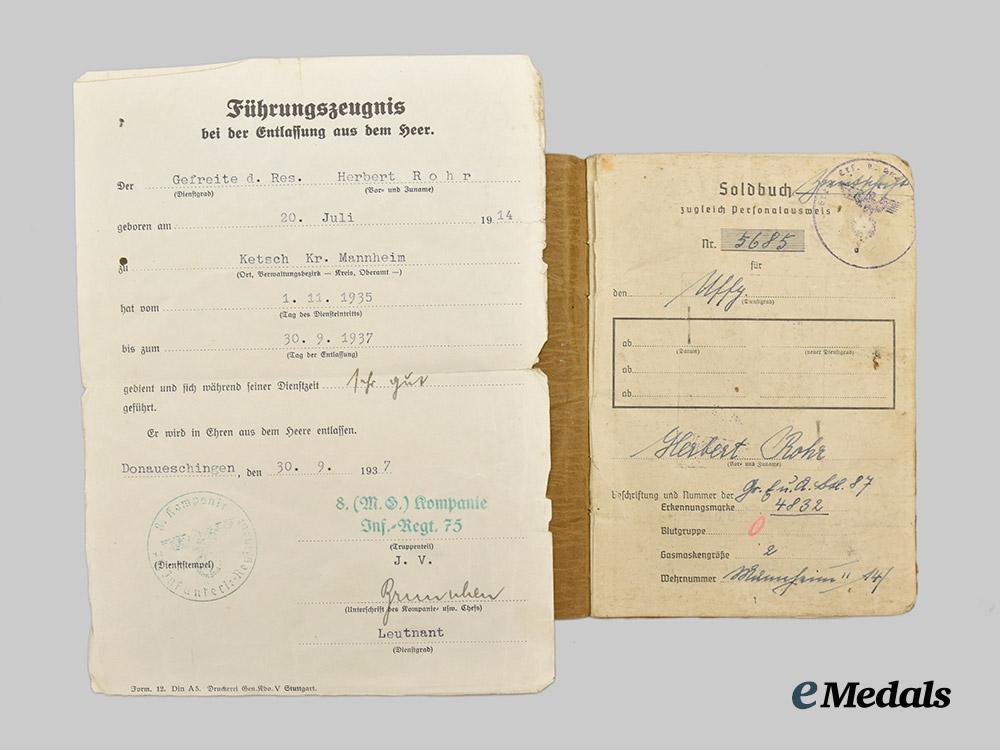 Führungszeugnis
bei der Entlassung aus dem Heer.
Der Gefreite d. Res. Herbert Rohr
(Dienstgrad) (Vor- und Zuname)
geboren am 20. Juli 1914
zu Ketsch Kr. Mannheim
(Ort, Verwaltungsbezirk — Kreis, Oberamt —)
hat vom 1. 11. 1935
(Tag des Diensteintritts)
bis zum 30. 9. 1937
(Tag der Entlassung)
gedient und sich während seiner Dienstzeit sehr gut
geführt.
Er wird in Ehren aus dem Heere entlassen.
Donaueschingen, den 30. 9. 1937
8. (M.G.) Kompanie
Inf.-Regt. 75
(Truppenteil)
8. Kompanie
Infanterie-Reg
(Dienststempel)
J. V.
(Unterschrift des Kompanie- usw. Chefs)
Leutnant
(Dienstgrad)
Form. 12. Din A5. Druckerei Gen.Kdo. V Stuttgart.
Soldbuch
zugleich Personalausweis
Nr. 5685
für
den Uffz.
(Dienstgrad)
ab
(Datum) (neuer Dienstgrad)
ab
ab
Herbert Rohr
(Vor- und Zuname)
Beschriftung und Nummer der
Erkennungsmarke 4832
Blutgruppe O
Gasmaskengröße 2
Wehrnummer Mannheim 14/
1
eMedals